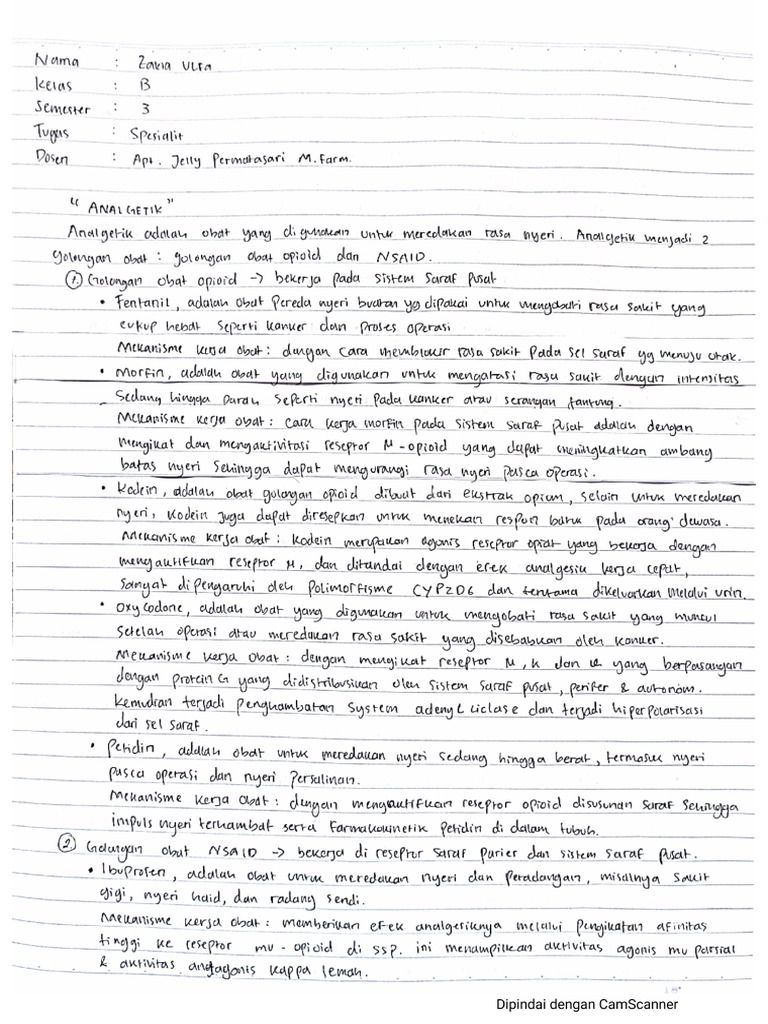 Nama : Zakia Ulfa
Kelas : B
Semester : 3
Tugas : Spesialit
Dosen : Apt. Jelly Permatasari M.Farm.
"ANALGETIK"
Analgetik adalah obat yang digunakan untuk meredakan rasa nyeri. Analgetik menjadi 2
golongan obat : golongan obat opioid dan NSAID.
① Golongan obat opioid → bekerja pada sistem saraf pusat
• Fentanil, adalah obat pereda nyeri buatan yg dipakai untuk mengobati rasa sakit yang
cukup hebat seperti kanker dan proses operasi
Mekanisme kerja obat : dengan cara memblokir rasa sakit pada sel saraf yg menuju otak.
• Morfin, adalah obat yang digunakan untuk mengatasi rasa sakit dengan intensitas
sedang hingga parah seperti nyeri pada kanker atau serangan jantung.
Mekanisme kerja obat : cara kerja morfin pada sistem saraf pusat adalah dengan
mengikat dan mengaktivitasi reseptor M-opioid yang dapat meningkatkan ambang
batas nyeri sehingga dapat mengurangi rasa nyeri pasca operasi.
• Kodein, adalah obat golongan opioid dibuat dari ekstrak opium, selain untuk meredakan
nyeri, kodein juga dapat diresepkan untuk menekan respon batuk pada orang dewasa.
Mekanisme kerja obat : kodein merupakan agonis reseptor opiat yang bekerja dengan
mengaktifkan reseptor M, dan ditandai dengan efek analgesik kerja cepat,
sangat dipengaruhi oleh polimorfisme CYP2D6 dan terutama dikeluarkan melalui urin.
• Oxycodone, adalah obat yang digunakan untuk mengobati rasa sakit yang muncul
setelah operasi atau meredakan rasa sakit yang disebabkan oleh kanker.
Mekanisme kerja obat : dengan mengikat reseptor M, K dan yang berpasangan
dengan protein G yang didistribusikan oleh sistem saraf pusat, perifer & autonom.
Kemudian terjadi penghambatan system adenyl ciclase dan terjadi hiperpolarisasi
dari sel saraf.
• Petidin, adalah obat untuk meredakan nyeri sedang hingga berat, termasuk nyeri
pasca operasi dan nyeri persalinan.
Mekanisme kerja obat : dengan mengaktifkan reseptor opioid disusunan saraf sehingga
impuls nyeri terhambat serta farmakokinetik petidin di dalam tubuh.
② Golongan obat NSAID → bekerja di reseptor saraf parier dan sistem saraf pusat.
• Ibuprofen, adalah obat untuk meredakan nyeri dan peradangan, misalnya sakit
gigi, nyeri haid, dan radang sendi.
Mekanisme kerja obat : memberikan efek analgesiknya melalui pengikatan afinitas
tinggi ke reseptor mu-opioid di SSP. ini menampilkan aktivitas agonis mu parsial
& aktivitas antagonis kappa lemah.
Dipindai dengan CamScanner